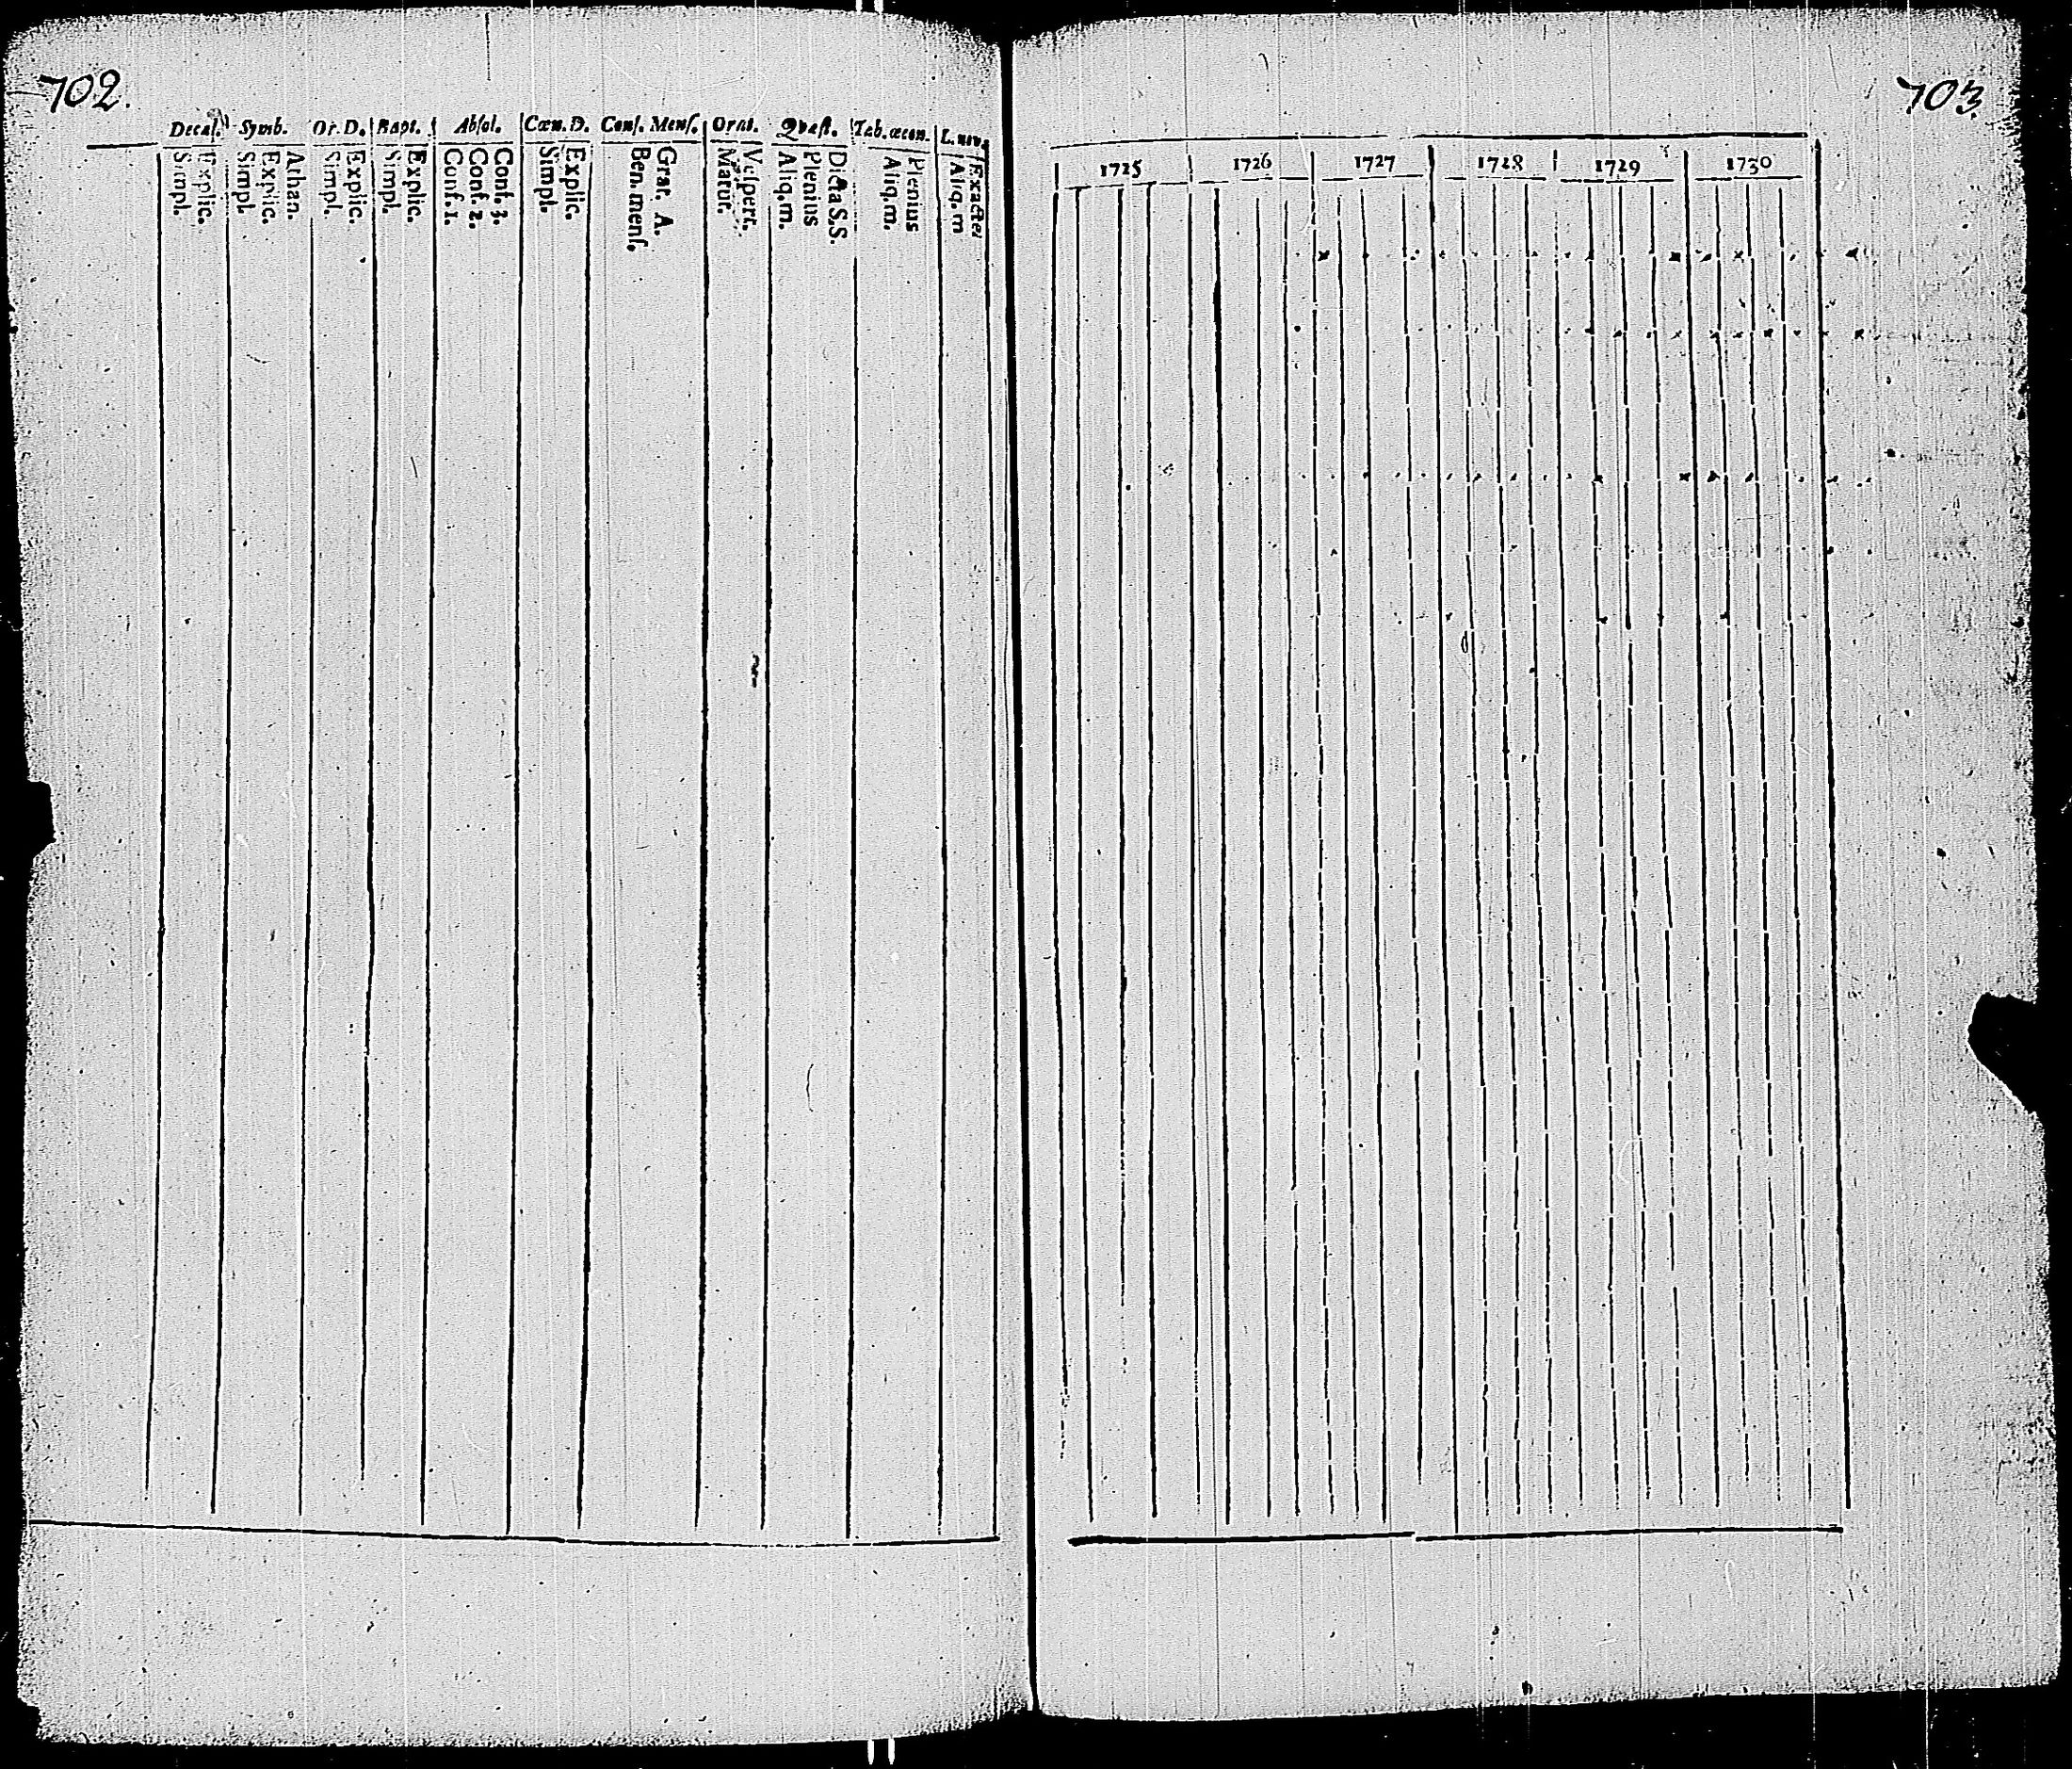 702.
Decal. Symb. Or. D. Bapt. Absol. Cœn. D. Conf. Mens. Orat. Quæst. Tab. œcon. L. nov.
Explic.
Simpl.
Athan.
Explic.
Simpl.
Explic.
Simpl.
Explic.
Simpl.
Conf. 3.
Conf. 2.
Conf. 1.
Explic.
Simpl.
Grat. A.
Ben. mens.
Vespert.
Matut.
Dicta S.S.
Plenius
Aliq. m.
Plenius
Aliq. m.
Exacte
Aliq. m
703.
1725 1726 1727 1728 1729 1730